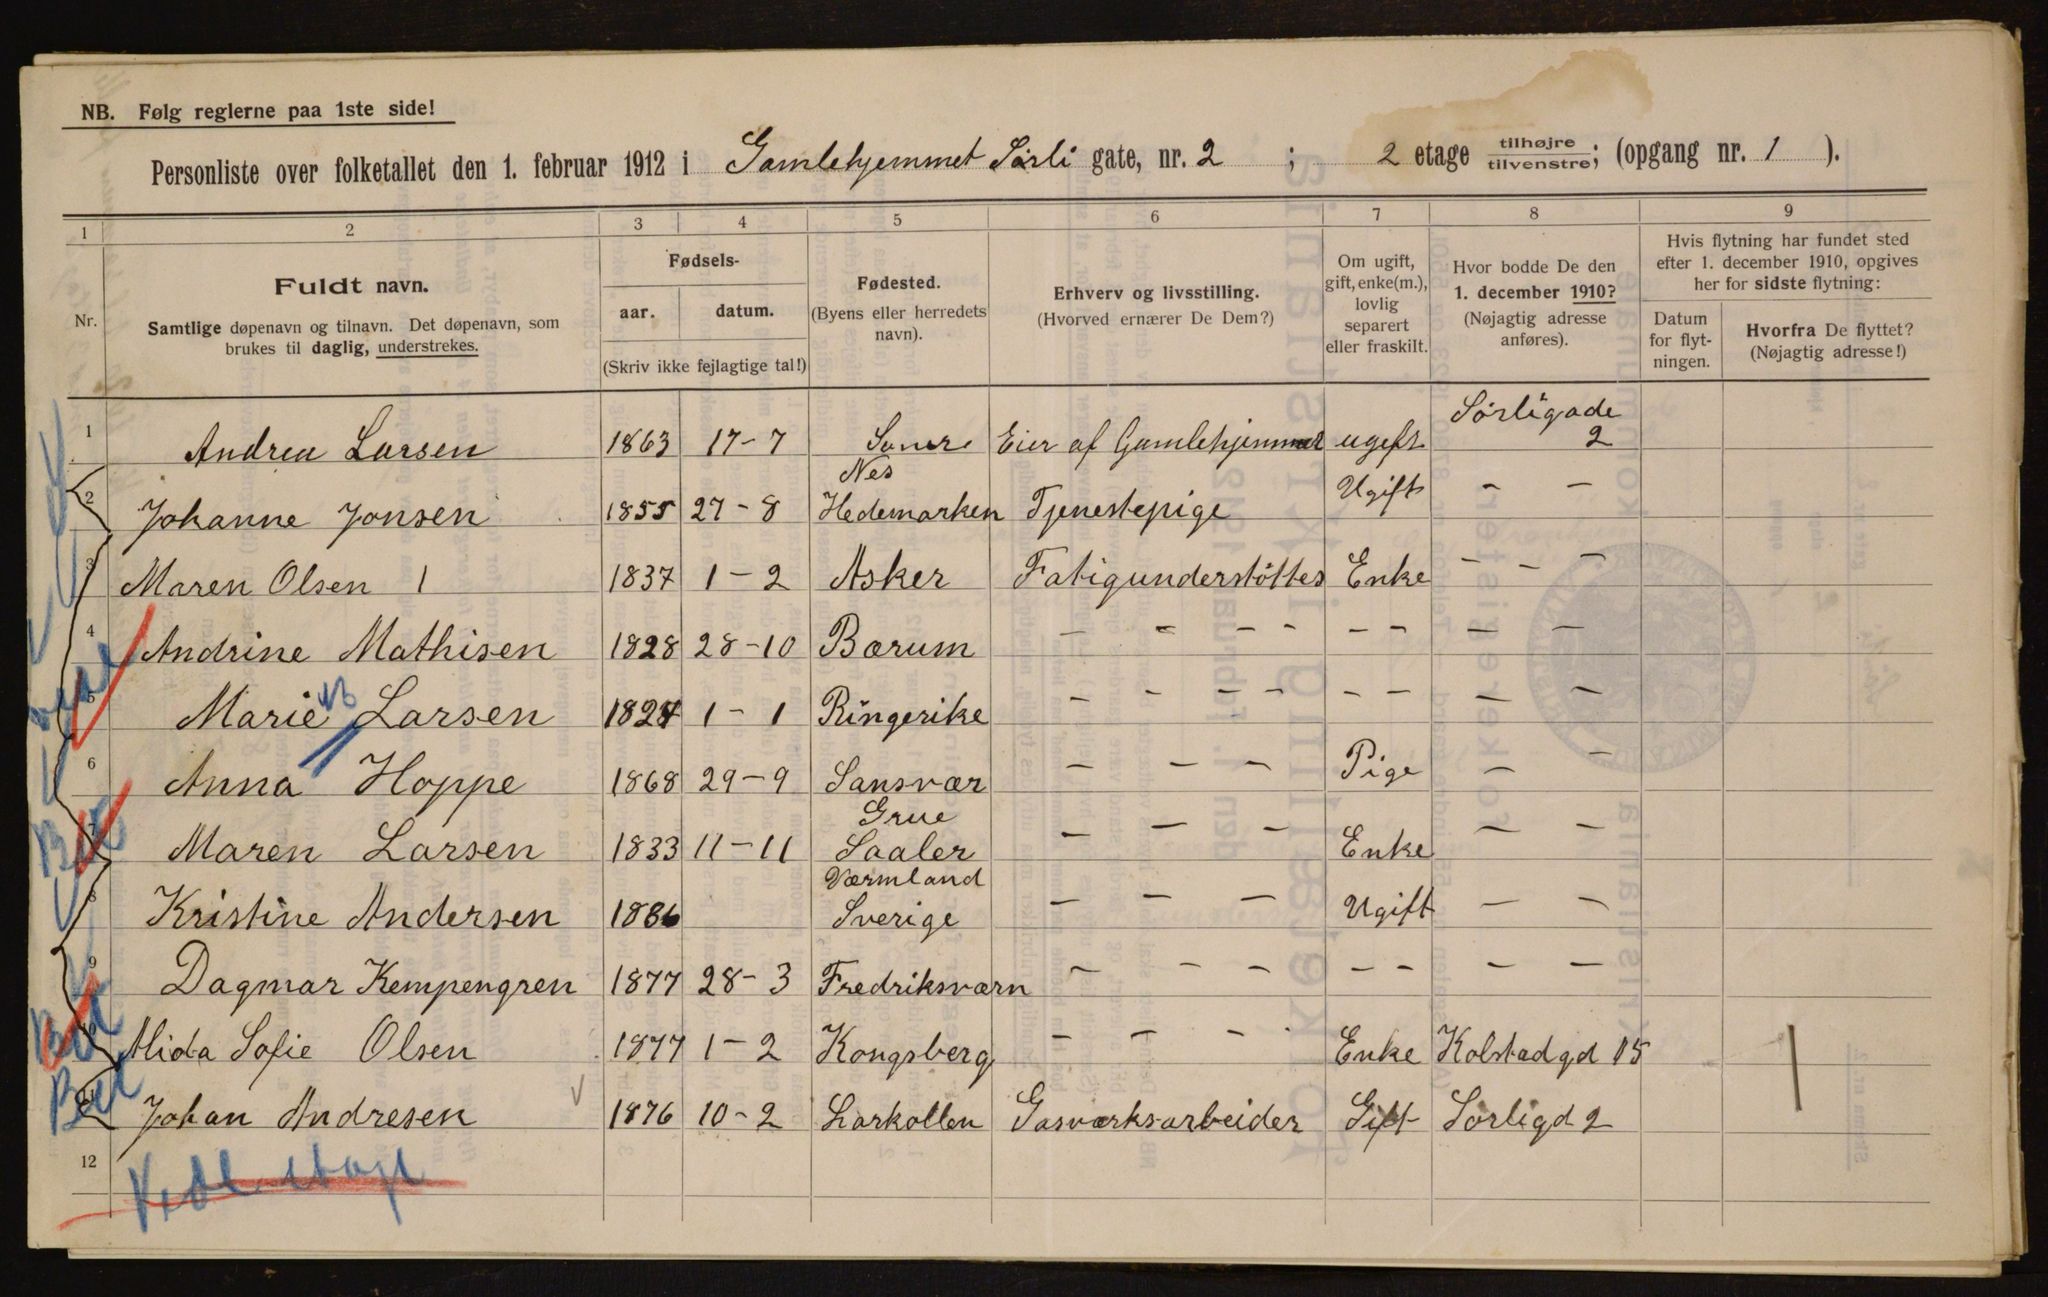 NB. Følg reglerne paa 1ste side!
Personliste over folketallet den 1. februar 1912 i Gamlehjemmet Sørli gate, nr. 2 ; 2 etage tilhøjre tilvenstre; (opgang nr. 1 ).
1 2 3 4 5 6 7 8 9
Nr.
Fuldt navn.
Samtlige døpenavn og tilnavn. Det døpenavn, som
brukes til daglig, understrekes.
Fødsels-
aar. datum.
(Skriv ikke fejlagtige tal!)
Fødested.
(Byens eller herredets
navn).
Erhverv og livsstilling.
(Hvorved ernærer De Dem?)
Om ugift,
gift, enke(m.),
lovlig
separert
eller fraskilt.
Hvor bodde De den
1. december 1910?
(Nøjagtig adresse
anføres).
Hvis flytning har fundet sted
efter 1. december 1910, opgives
her for sidste flytning:
Datum
for flyt-
ningen.
Hvorfra De flyttet?
(Nøjagtig adresse!)
1 Andrea Larsen 1863 17-7 Eier af Gamlehjemmet ugift Sørligade 2
2 Johanne Jonsen 1855 27-8 Nes Hedemarken Tjenestepige Ugift - -
3 Maren Olsen 1 1837 1-2 Asker Fatigunderstöttes Enke - - -
4 Andrine Mathisen 1828 28-10 Bærum - - - - - - - -
5 Marie Larsen 1824 1-1 Ringerike - - - - - - - -
6 Anna Hoppe 1868 29-9 Sansvær - - - Pige - -
7 Maren Larsen 1833 11-11 Grue Saaler - - - Enke - -
8 Kristine Andersen 1886 Værmland Sverige - - - Ugift - -
9 Dagmar Kempengren 1877 28-3 Fredriksværn - - - - - - -
10 Alida Sofie Olsen 1877 1-2 Kongsberg - - - Enke Kolstadgd 15
11 Johan Andresen 1876 10-2 Larkollen Gasværksarbeider Gift Sørligd 2
12